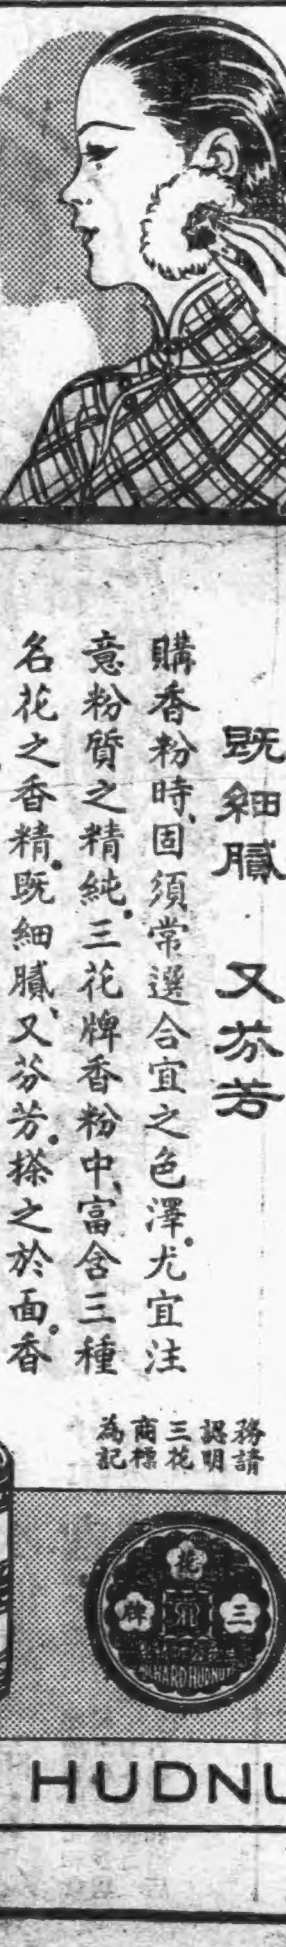 既細膩 又芬芳
購香粉時、固須常選合宜之色澤。尤宜注
意粉質之精純。三花牌香粉中、富含三種
名花之香精。既細膩、又芬芳。搽之於面。香
務請
認明
三花
商標
為記
三花牌
RICHARD HUDNUT
HUDNU